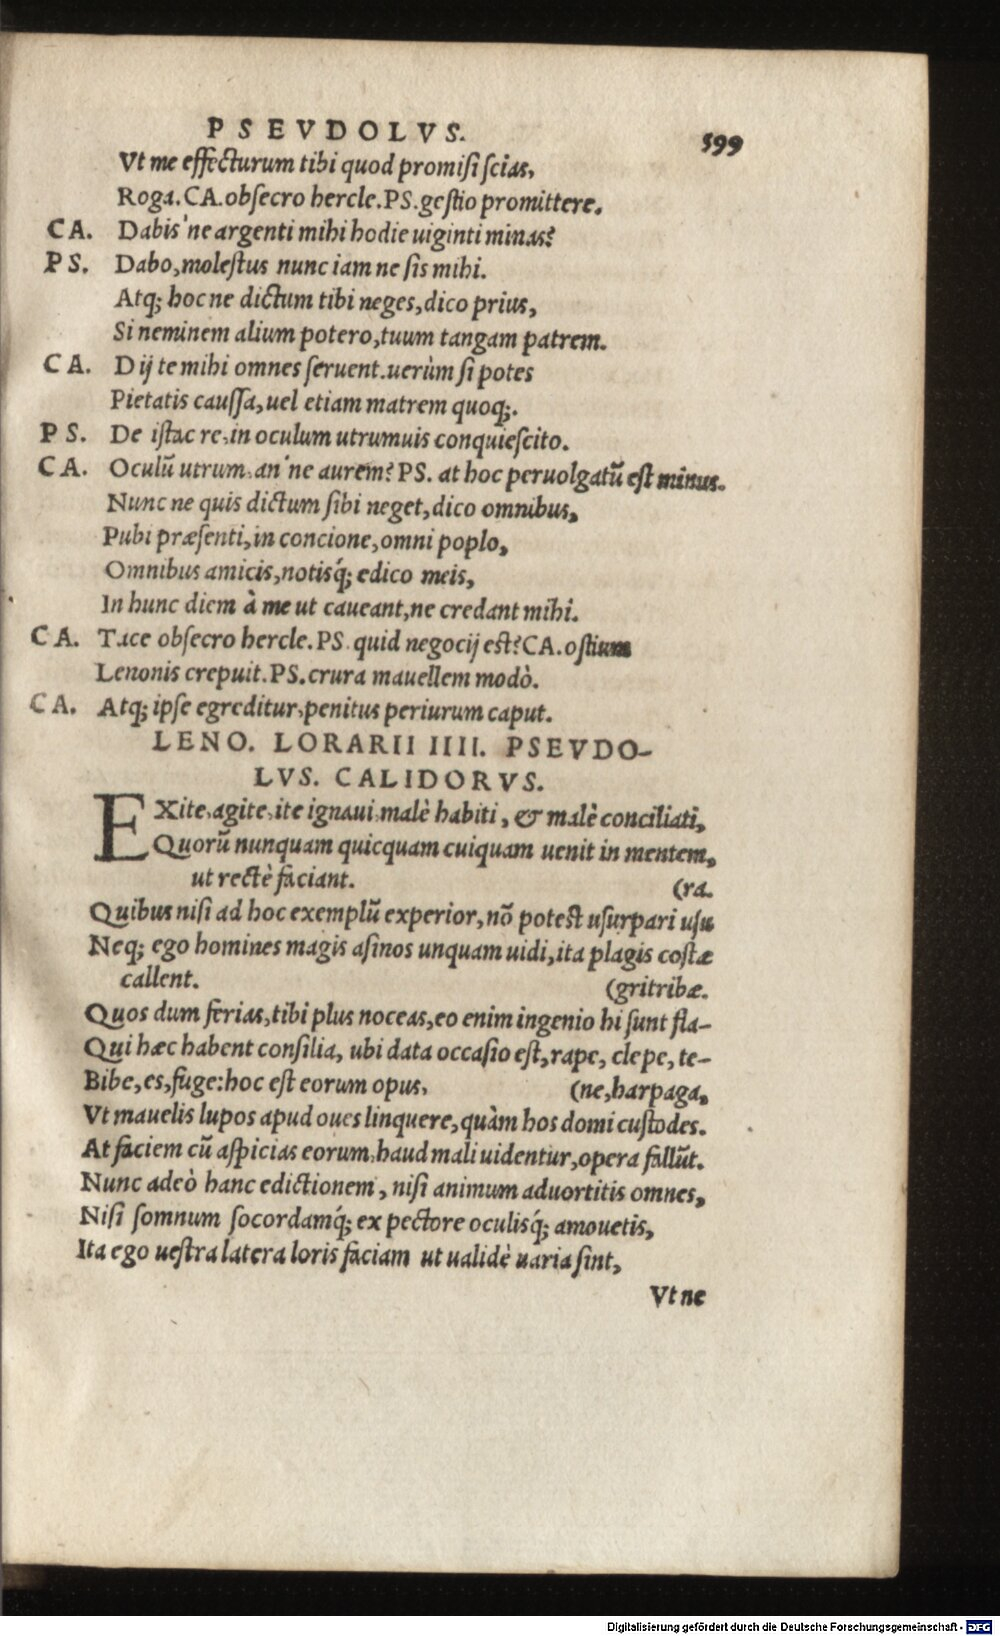 PSEVDOLVS. 599
Vt me effecturum tibi quod promisi scias,
Roga. CA. obsecro hercle. PS. gestio promittere.
CA. Dabis'ne argenti mihi hodie uiginti minas?
PS. Dabo, molestus nunc iam ne sis mihi.
Atq; hoc ne dictum tibi neges, dico prius,
Si neminem alium potero, tuum tangam patrem.
CA. Dij te mihi omnes seruent. uerùm si potes
Pietatis caussa, uel etiam matrem quoq;.
PS. De istac re, in oculum utrumuis conquiescito.
CA. Oculũ utrum, an'ne aurem? PS. at hoc peruolgatũ est minus.
Nunc ne quis dictum sibi neget, dico omnibus,
Pubi præsenti, in concione, omni poplo,
Omnibus amicis, notisq́; edico meis,
In hunc diem à me ut caueant, ne credant mihi.
CA. Tace obsecro hercle. PS. quid negocij est? CA. ostium
Lenonis crepuit. PS. crura mauellem modò.
CA. Atq; ipse egreditur, penitus periurum caput.
LENO. LORARII IIII. PSEVDO-
LVS. CALIDORVS.
EXite, agite, ite ignaui, malè habiti, & malè conciliati,
Quorũ nunquam quicquam cuiquam uenit in mentem,
ut rectè faciant. (ra.
Quibus nisi ad hoc exemplũ experior, nõ potest usurpari usu
Neq; ego homines magis asinos unquam uidi, ita plagis costæ
callent. (gritribæ.
Quos dum ferias, tibi plus noceas, eo enim ingenio hi sunt fla-
Qui hæc habent consilia, ubi data occasio est, rape, clepe, te-
Bibe, es, fuge: hoc est eorum opus, (ne, harpaga,
Vt mauelis lupos apud oues linquere, quàm hos domi custodes.
At faciem cũ aspicias eorum, haud mali uidentur, opera fallũt.
Nunc adeò hanc edictionem, nisi animum aduortitis omnes,
Nisi somnum socordamq́; ex pectore oculisq́; amouetis,
Ita ego uestra latera loris faciam ut ualidè uaria sint,
Vt ne
Digitalisierung gefördert durch die Deutsche Forschungsgemeinschaft - DFG